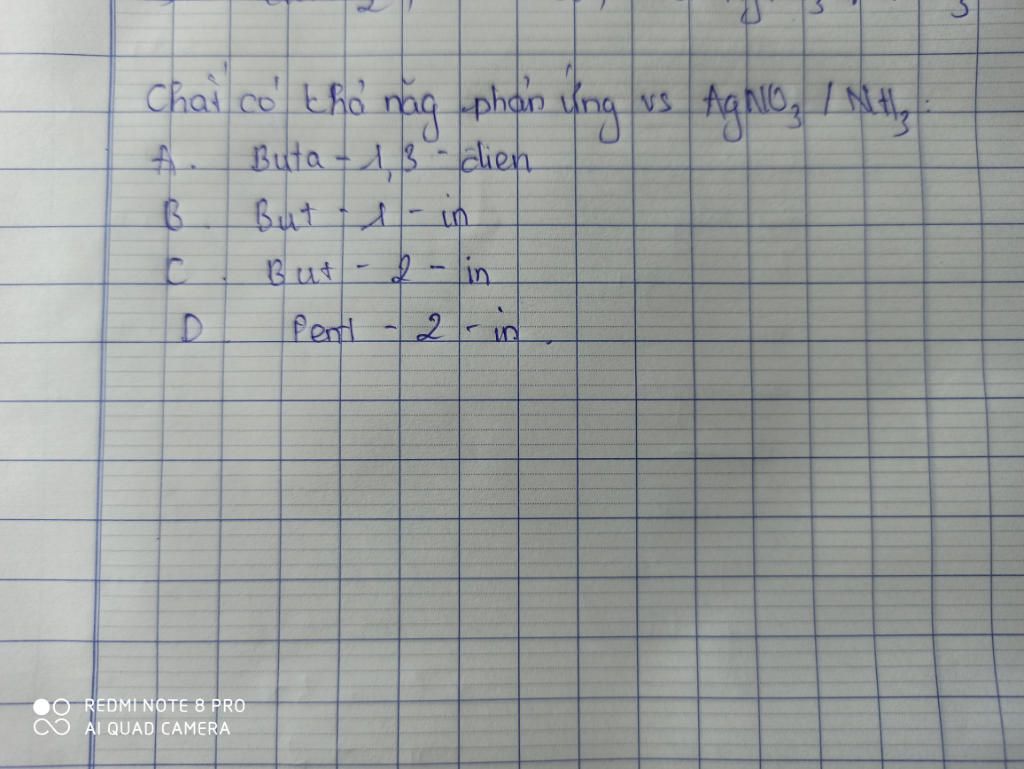 Chất có khả năg phản ứng vs AgNO3 / NH3:
A. Buta - 1,3 - dien
B. But - 1 - in
C. But - 2 - in
D Pent - 2 - in.
REDMI NOTE 8 PRO
AI QUAD CAMERA